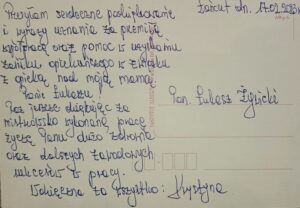 Przesyłam serdeczne podziękowanie
i wyrazy uznania za przemiłą
współpracę oraz pomoc w uzyskaniu
zasiłku opiekuńczego w związku
z opieką nad moją mamą.
Panie Łukaszu
Raz jeszcze dziękując za
mistrzowsko wykonaną pracę
życzę Panu dużo zdrowia
oraz dalszych zawodowych
sukcesów w pracy.
Wdzięczna za wszystko: Krystyna
Łańcut dn. 17.02
Pan Łukasz